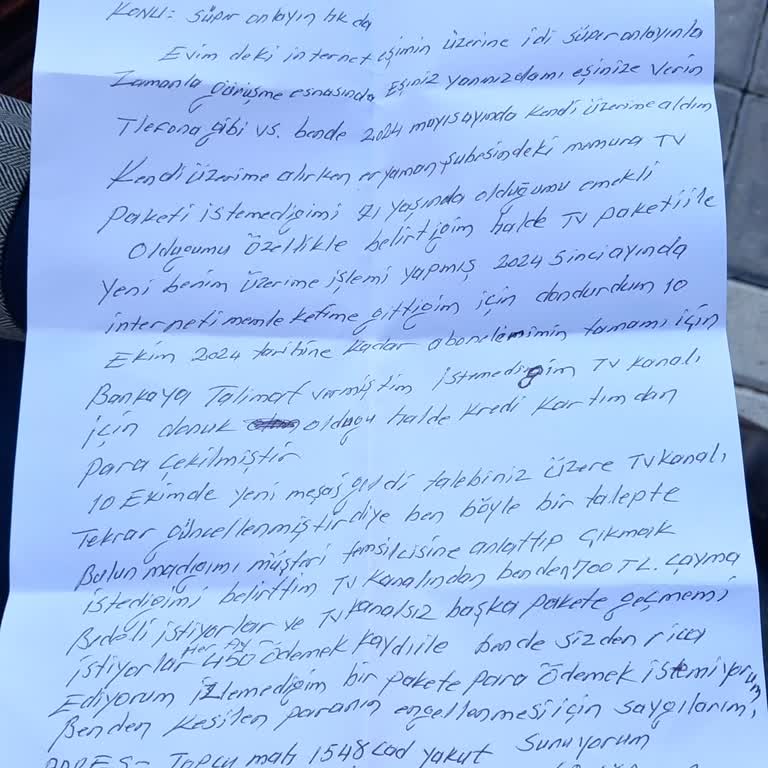 KONU: süper onlayın hk da
Evim deki internet eşimin üzerine idi süper onlayınla
Zamanla görüşme esnasında Eşiniz yanınızdamı eşinize verin
Tlefona gibi vs. bende 2024 mayısayında kendi üzerime aldım
Kendi üzerime alırken eryaman şubesindeki memura TV
paketi istemediğimi 71 yaşında olduğumu emekli
Olduğumu özellikle belirtiğim halde TV paketi ile
yeni benim üzerime işlemi yapmış 2024 5inci ayında
interneti memleketime gittiğim için dondurdum 10
Ekim 2024 tarihine kadar abonelemimin tamamı için
Bankaya Talimat vermiştim istemediğim TV kanalı
için donuk olduğu halde kredi kartımdan
para çekilmiştir
10 Ekimde yeni mesaj geldi talebiniz üzere TV kanalı
Tekrar güncellenmiştir diye ben böyle bir talepte
Bulunmadığımı müşteri temsilcisine anlattıp çıkmak
istediğimi belirttim TV kanalından benden 700 TL. cayma
Bedeli istiyorlar ve TV kanalsız başka pakete geçmemi
istiyorlar Her Ay 450 ödemek kaydıile bende sizden rica
Ediyorum izlemediğim bir pakete para ödemek istemiyorum
Benden kesilen paranın engellenmesi için saygılarımı
sunuyorum
ADRES- Topçu mah 1548 cad yakut